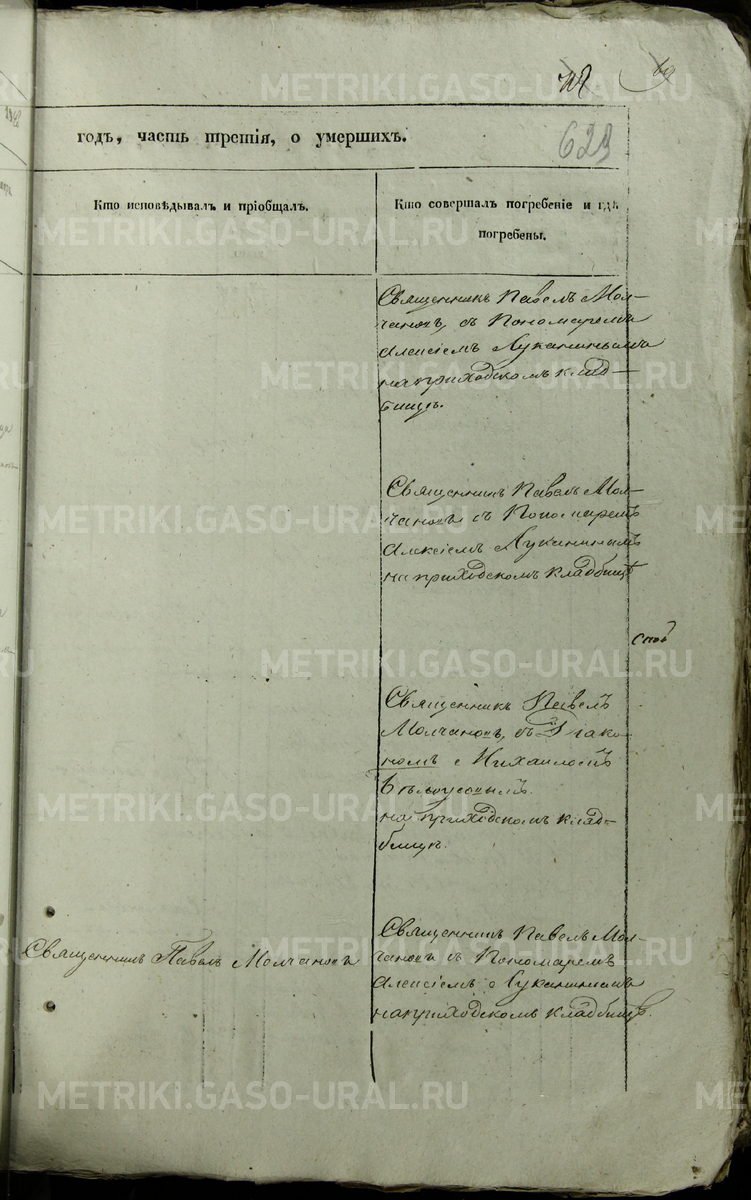 623
годъ, часть третія, о умершихъ.
Кто исповѣдывалъ и пріобщалъ.
Кто совершалъ погребеніе и гдѣ
погребены.
Священникъ Павелъ Мол-
чановъ, съ Пономаремъ
Алексіемъ Лукан­инымъ
на приходскомъ клад-
бищѣ.
Священникъ Павелъ Мол-
чановъ съ Пономаремъ
Алексіемъ Луканинымъ
на приходскомъ кладбищѣ
Священникъ Павелъ
Молчановъ, съ Діако-
номъ Михаиломъ
Бѣлоусовымъ
на приходскомъ клад-
бищѣ.
Священникъ Павелъ Молчановъ
Священникъ Павелъ Мол-
чановъ съ Пономаремъ
Алексіемъ Луканинымъ
на приходскомъ кладбищѣ.
METRIKI.GASO-URAL.RU